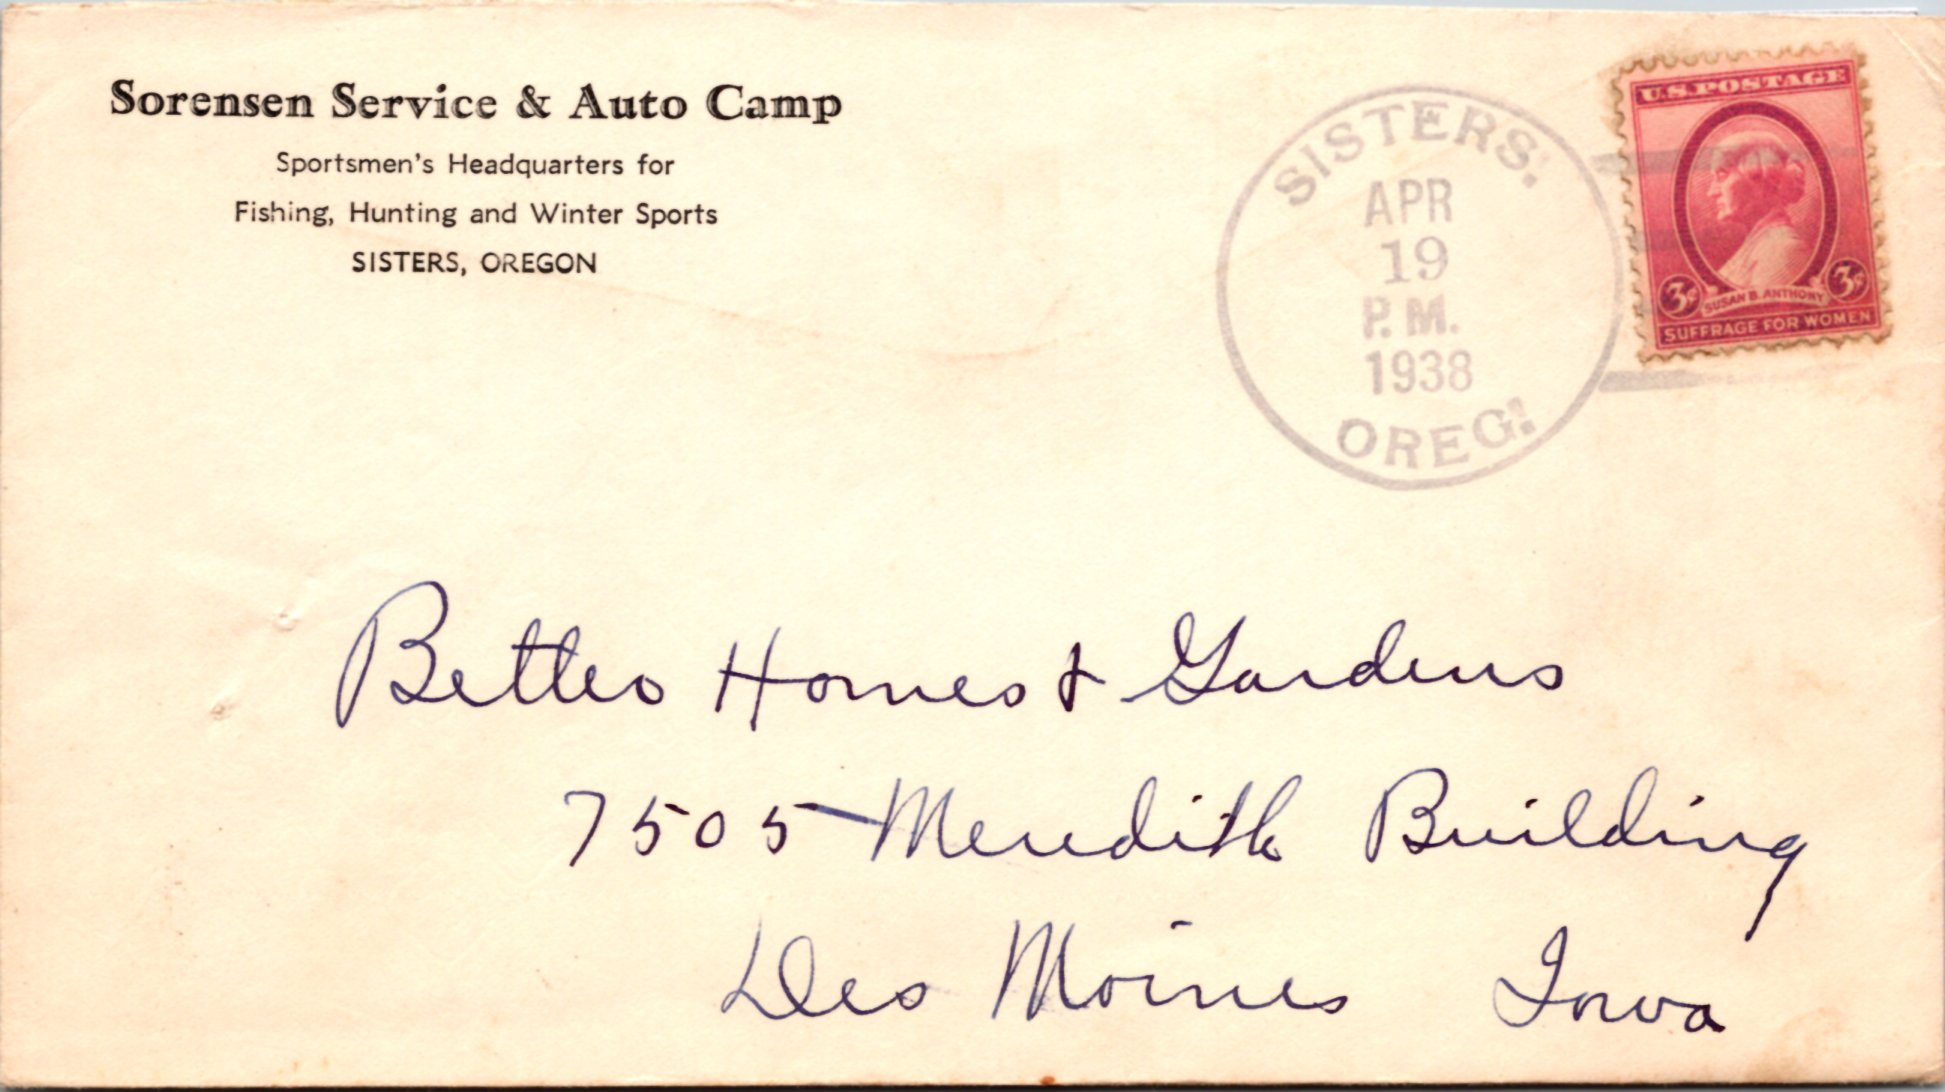 Sorensen Service & Auto Camp
Sportsmen's Headquarters for
Fishing, Hunting and Winter Sports
SISTERS, OREGON
SISTERS.
APR
19
P.M.
1938
OREG.
U.S. POSTAGE
3¢ SUSAN B. ANTHONY 3¢
SUFFRAGE FOR WOMEN
Better Homes & Gardens
7505 Meredith Building
Des Moines Iowa